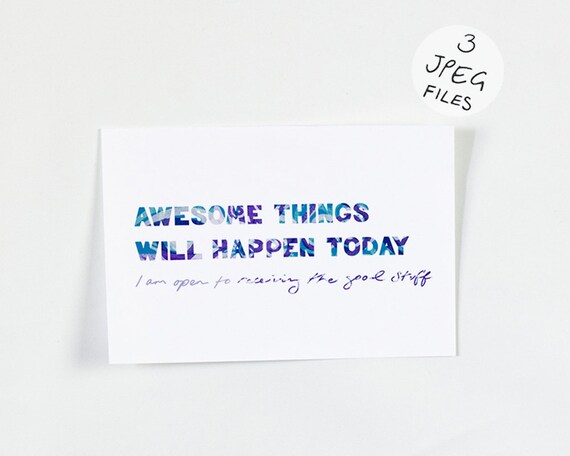 3
JPEG
FILES
AWESOME THINGS
WILL HAPPEN TODAY
I am open to receiving the good stuff